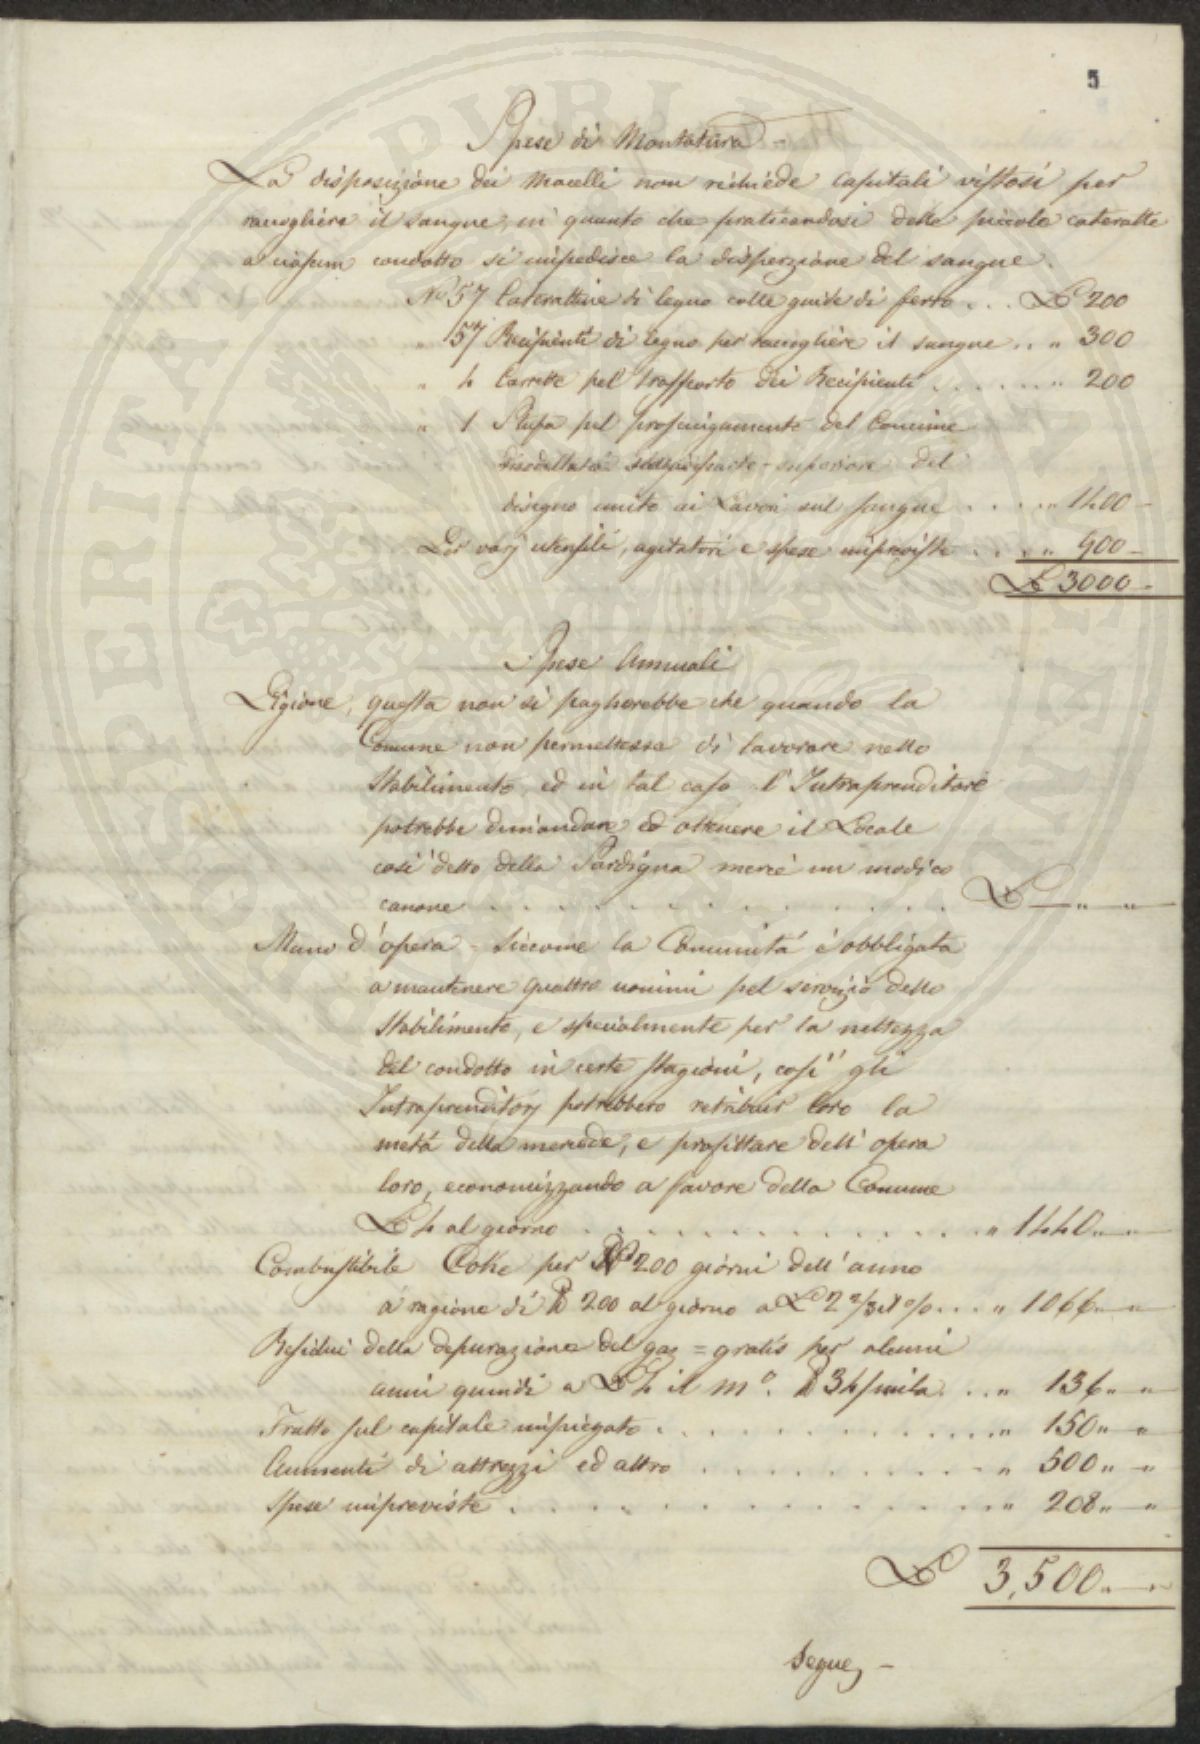 5
Spese di Montatura -
La disposizione dei Macelli non richiede capitali vistosi per
raccogliere il sangue, in quanto che praticandosi delle piccole cateratte
a ciascun condotto si impedisce la disperzione del sangue.
N.° 57 Caterattine di legno colle guide di ferro . . . L 200
" 57 Recipienti di legno per raccogliere il sangue . . " 300
" 4 Carrette pel trasporto dei Recipienti . . . . . . . " 200
" 1 Stufa pel prosciugamento del Concime
superiore del
disegno unito ai Lavori sul sangue . . . . " 1400 -
Per varj utensili, agitatori e spese impreviste . . . . " 900 -
L 3000 -
Spese Annuali
Pigione, questa non si pagherebbe che quando la
Comune non permettesse di lavorare nello
Stabilimento, ed in tal caso l'Intraprenditore
potrebbe dimandare ed ottenere il Locale
così detto della Sardigna mercé un modico
canone . . . . . . . . . . . . . L — " "
Mano d'opera - Siccome la Comunità è obbligata
a mantenere quattro uomini pel servizio dello
Stabilimento, e specialmente per la nettezza
del condotto in certe stagioni, così gli
Intraprenditorj potrebbero retribuir loro la
metà della mercede, e profittare dell'opera
loro, economizzando a favore della Comune
L 4 al giorno . . . . . . . . . . . . " 1440 " "
Combustibile Coke per N.° 200 giorni dell'anno
a ragione di 200 al giorno a L 2 2/3 il % . . . " 1066 " "
Residui della depurazione del gaz = gratis per alcuni
anni quindi a L 4 il m.° 34/mila . . . " 136 " "
Frutto sul capitale impiegato . . . . . . . . . . " 150 " "
Aumenti di attrezzi ed altro . . . . . . . . . . " 500 " "
Spese impreviste . . . . . . . . . . . . . . . " 208 " "
L 3,500 " "
Segue -